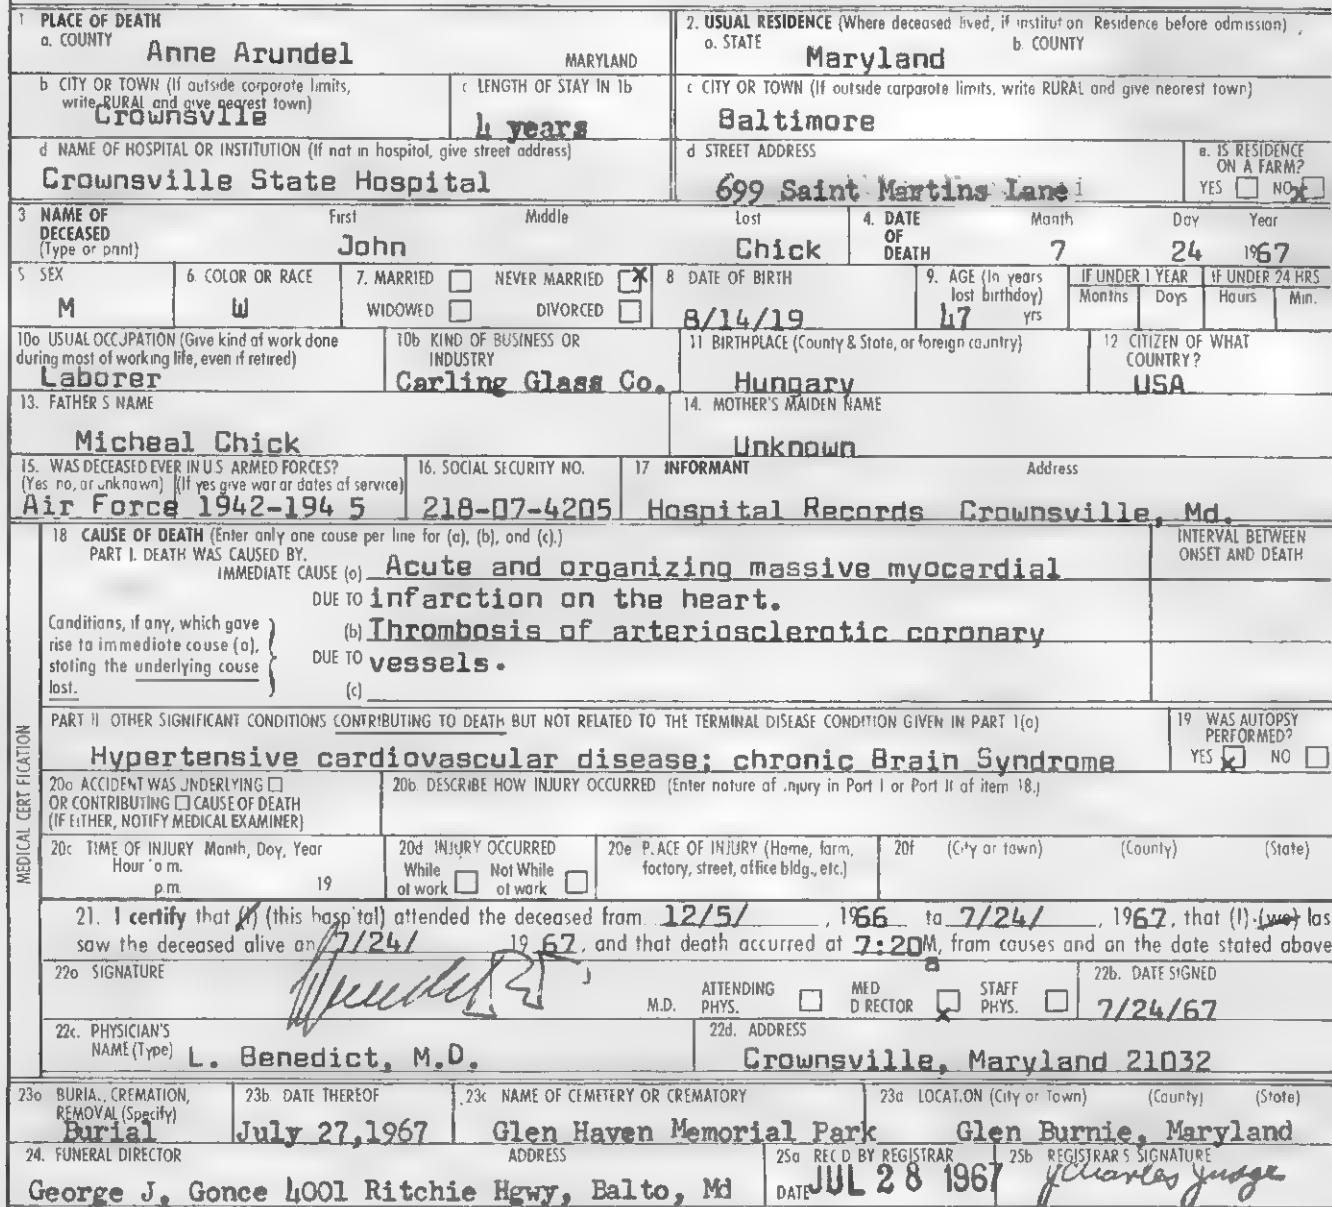 1 PLACE OF DEATH
a. COUNTY Anne Arundel MARYLAND
2. USUAL RESIDENCE (Where deceased lived, if institution Residence before admission)
a. STATE Maryland b. COUNTY
b CITY OR TOWN (If outside corporate limits, write RURAL and give nearest town)
Crownsvlle
c LENGTH OF STAY IN 1b
4 years
c CITY OR TOWN (If outside corporate limits, write RURAL and give nearest town)
Baltimore
d NAME OF HOSPITAL OR INSTITUTION (If not in hospital, give street address)
Crownsville State Hospital
d STREET ADDRESS
699 Saint Martins Lane
e. IS RESIDENCE ON A FARM?
YES NO x
3 NAME OF DECEASED (Type or print)
First Middle Last
John Chick
4. DATE OF DEATH
Month Day Year
7 24 1967
5 SEX
M
6. COLOR OR RACE
W
7. MARRIED NEVER MARRIED x
WIDOWED DIVORCED
8 DATE OF BIRTH
8/14/19
9. AGE (In years last birthday)
47 yrs
IF UNDER 1 YEAR
Months Days
IF UNDER 24 HRS
Hours Min.
10a USUAL OCCUPATION (Give kind of work done during most of working life, even if retired)
Laborer
10b KIND OF BUSINESS OR INDUSTRY
Carling Glass Co.
11 BIRTHPLACE (County & State, or foreign country)
Hungary
12 CITIZEN OF WHAT COUNTRY?
USA
13. FATHER S NAME
Micheal Chick
14. MOTHER'S MAIDEN NAME
Unknown
15. WAS DECEASED EVER IN U.S ARMED FORCES?
(Yes no, or unknown) (If yes give war or dates of service)
Air Force 1942-194 5
16. SOCIAL SECURITY NO.
218-07-4205
17 INFORMANT Address
Hospital Records Crownsville, Md.
MEDICAL CERTIFICATION
18 CAUSE OF DEATH (Enter only one cause per line for (a), (b), and (c).)
INTERVAL BETWEEN ONSET AND DEATH
PART I. DEATH WAS CAUSED BY.
IMMEDIATE CAUSE (a) Acute and organizing massive myocardial
DUE TO infarction on the heart.
Conditions, if any, which gave rise to immediate cause (a), stating the underlying cause last.
(b) Thrombosis of arteriosclerotic coronary
DUE TO vessels.
(c)
PART II OTHER SIGNIFICANT CONDITIONS CONTRIBUTING TO DEATH BUT NOT RELATED TO THE TERMINAL DISEASE CONDITION GIVEN IN PART I(a)
Hypertensive cardiovascular disease; chronic Brain Syndrome
19 WAS AUTOPSY PERFORMED?
YES x NO
20a ACCIDENT WAS UNDERLYING
OR CONTRIBUTING CAUSE OF DEATH
(IF EITHER, NOTIFY MEDICAL EXAMINER)
20b. DESCRIBE HOW INJURY OCCURRED (Enter nature of injury in Part I or Part II of item 18.)
20c TIME OF INJURY Month, Day, Year
Hour a m.
p m. 19
20d INJURY OCCURRED
While at work Not While at work
20e PLACE OF INJURY (Home, farm, factory, street, office bldg., etc.)
20f (City or town) (County) (State)
21. I certify that (I) (this hospital) attended the deceased from 12/5/ , 1966 to 7/24/ , 1967, that (I) (we) las
saw the deceased alive on 7/24/ 1967, and that death occurred at 7:20 aM, from causes and on the date stated above
22a SIGNATURE
M.D. ATTENDING PHYS. MED DIRECTOR x STAFF PHYS.
22b. DATE SIGNED
7/24/67
22c. PHYSICIAN'S NAME (Type) L. Benedict, M.D.
22d. ADDRESS
Crownsville, Maryland 21032
23a BURIAL, CREMATION, REMOVAL (Specify)
Burial
23b. DATE THEREOF
July 27,1967
23c NAME OF CEMETERY OR CREMATORY
Glen Haven Memorial Park
23d LOCATION (City or Town) (County) (State)
Glen Burnie, Maryland
24. FUNERAL DIRECTOR ADDRESS
George J. Gonce 4001 Ritchie Hgwy, Balto, Md
25a REC'D BY REGISTRAR
DATE JUL 28 1967
25b REGISTRAR'S SIGNATURE
J Charles Judge